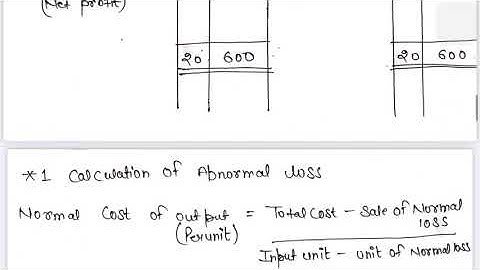 (Net profit)
20 600 20 600
*1 Calculation of Abnormal loss
Normal Cost of output = Total Cost - Sale of Normal loss
(Per unit) Input unit - unit of Normal loss